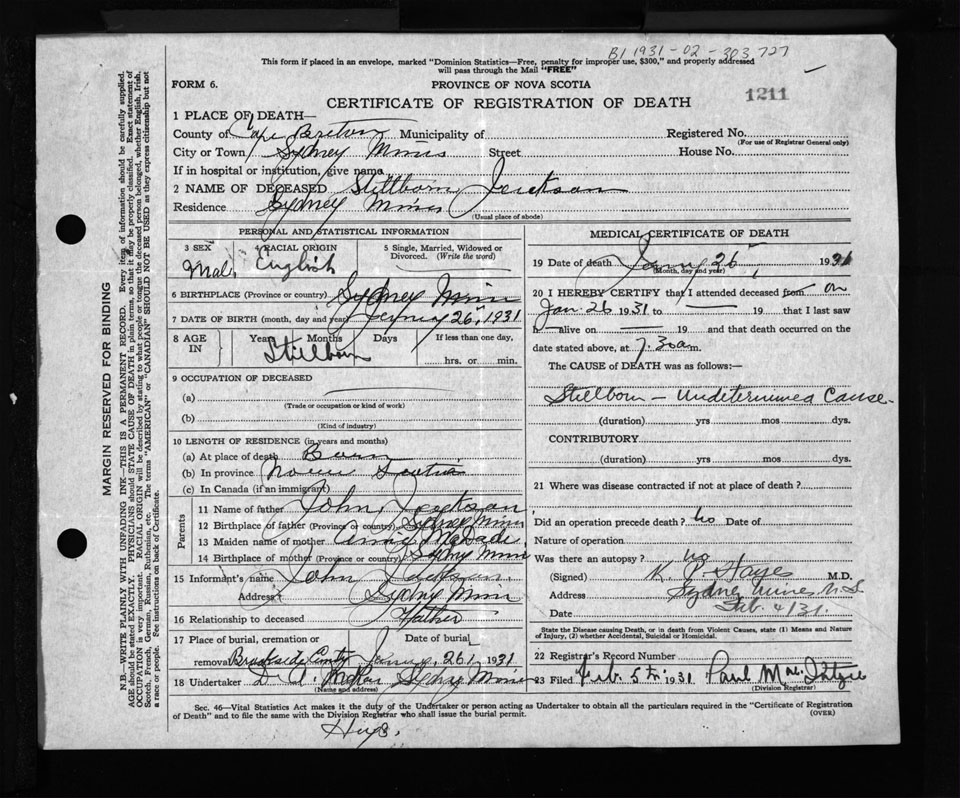 B1 1931-02-303727
This form if placed in an envelope, marked "Dominion Statistics—Free, penalty for improper use, $300," and properly addressed
will pass through the Mail "FREE"
FORM 6.
PROVINCE OF NOVA SCOTIA
CERTIFICATE OF REGISTRATION OF DEATH
1211
1 PLACE OF DEATH—
County of Cape Breton Municipality of Registered No.
(For use of Registrar General only)
City or Town Sydney Mines Street House No.
If in hospital or institution, give name
2 NAME OF DECEASED Stillborn Jackson
Residence Sydney Mines
(Usual place of abode)
PERSONAL AND STATISTICAL INFORMATION
3 SEX Male
4 RACIAL ORIGIN English
5 Single, Married, Widowed or
Divorced. (Write the word)
6 BIRTHPLACE (Province or country) Sydney Mines
7 DATE OF BIRTH (month, day and year) 26, 1931
8 AGE IN Years Months Days If less than one day,
Stillborn
hrs. or min.
9 OCCUPATION OF DECEASED
(a)
(Trade or occupation or kind of work)
(b)
(Kind of industry)
10 LENGTH OF RESIDENCE (in years and months)
(a) At place of death Born
(b) In province Nova Scotia
(c) In Canada (if an immigrant)
Parents
11 Name of father John Jackson
12 Birthplace of father (Province or country) Sydney Mines
13 Maiden name of mother Annie McDade
14 Birthplace of mother (Province or country) Sydney Mines
15 Informant's name John Jackson
Address Sydney Mines
16 Relationship to deceased Father
17 Place of burial, cremation or removal Date of burial
Brookside 26 1931
18 Undertaker Sydney Mines
(Name and address)
MEDICAL CERTIFICATE OF DEATH
19 Date of death 26, 1931
(Month, day and year)
20 I HEREBY CERTIFY that I attended deceased from on
Jan. 26 1931 to — 19 that I last saw
h— alive on — 19 and that death occurred on the
date stated above, at 7.30 am.
The CAUSE of DEATH was as follows:—
Stillborn — Undetermined Cause.
(duration) yrs mos dys.
CONTRIBUTORY
(duration) yrs mos dys.
21 Where was disease contracted if not at place of death?
Did an operation precede death? No Date of
Nature of operation
Was there an autopsy? No
(Signed) Hayes M.D.
Address Sydney Mines N.S.
Date Feb. 4/31.
State the Disease causing Death, or in death from Violent Causes, state (1) Means and
Nature of Injury, (2) whether Accidental, Suicidal or Homicidal.
22 Registrar's Record Number
23 Filed Feb. 5th 1931 Paul
(Division Registrar)
Sec. 46—Vital Statistics Act makes it the duty of the Undertaker or person acting as Undertaker to obtain all the particulars required in the "Certificate of Registration
of Death" and to file the same with the Division Registrar who shall issue the burial permit.
(OVER)
MARGIN RESERVED FOR BINDING
N.B.—WRITE PLAINLY WITH UNFADING INK—THIS IS A PERMANENT RECORD. Every item of information should be carefully supplied.
AGE should be stated EXACTLY. PHYSICIANS should STATE CAUSE OF DEATH in plain terms so that it may be properly classified. Exact statement of
OCCUPATION is very important. RACIAL ORIGIN will be described by stating to what people or tongue the deceased person belonged, whether English, Irish,
Scotch, French, German, Russian, Ruthenian, etc. The terms "AMERICAN" or "CANADIAN" SHOULD NOT BE USED as they express citizenship but not
a race or people. See instructions on back of Certificate.